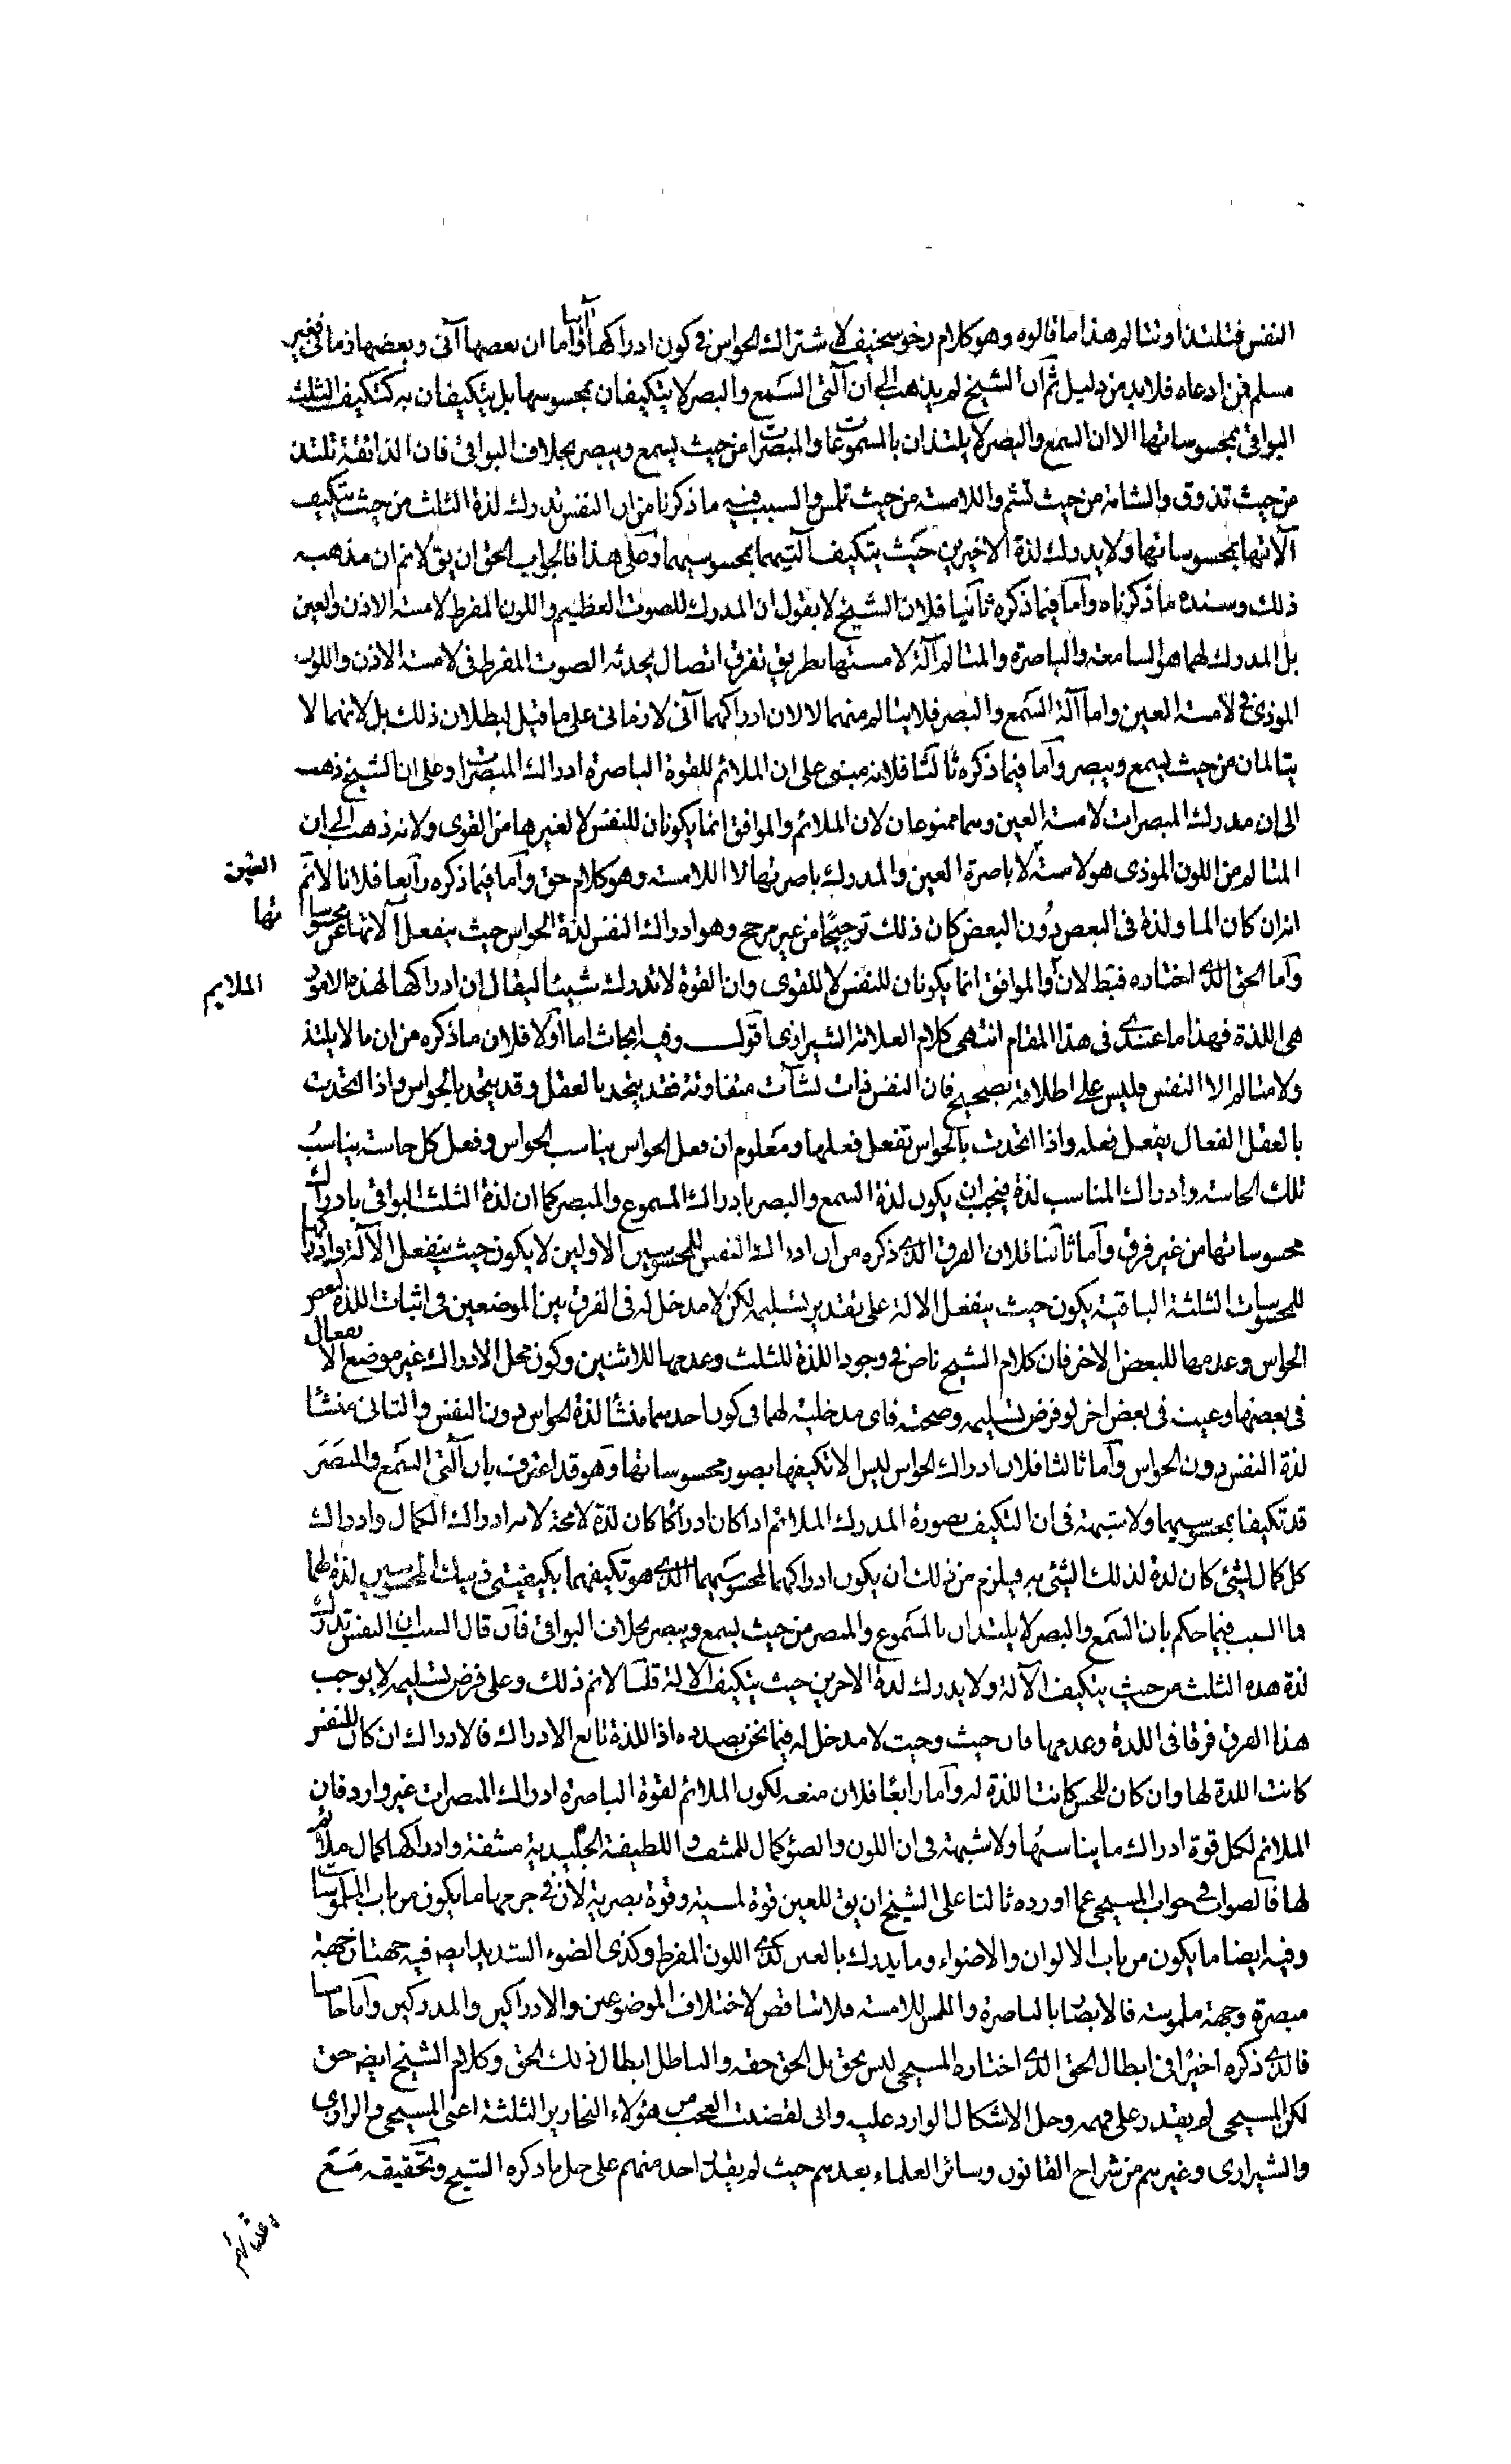 النفس فتلتذ او تتالم هذا ما قالوه وهو كلام رخو سخيف لاشتراك الحواس فى كون ادراكها آنيا واما ان بعضها آنى وبعضها زمانى فغير
مسلم فمن ادعاه فلابد من دليل ثم ان الشيخ لم يذهب الى ان آلتى السمع والبصر لا يتكيفان بمحسوسهما بل يتكيفان به كتكيف الثلث
البواقى بمحسوساتها الا ان السمع والبصر لا يلتذان بالمسموعات والمبصرات من حيث يسمع ويبصر بخلاف البواقى فان الذائقة تلتذ
من حيث تذوق والشامة من حيث تشم واللامسة من حيث تلمس والسبب فيه ما ذكرنا من ان النفس تدرك لذة الثلث من حيث يتكيف
آلاتها بمحسوساتها ولا يدرك لذة الاخيرين حيث يتكيف آلتيهما بمحسوسيهما وعلى هذا فالجواب الحق ان يق لا نم ان مذهبه
ذلك وسنده ما ذكرناه واما فيما ذكره ثانيا فلان الشيخ لا يقول ان المدرك للصوت العظيم واللون المفرط لامسة الاذن والعين
بل المدرك لهما هو السامعة والباصرة والمتالم آلة لامستها بطريق تفرق اتصال يحدثه الصوت المفرط فى لامسة الاذن واللون
الموذى فى لامسة العين واما آلة السمع والبصر فلا يتالم منهما لا لان ادراكهما آنى لا زمانى على ما قيل لبطلان ذلك بل لانهما لا
يتالمان من حيث يسمع ويبصر واما فيما ذكره ثالثا فلانه مبنى على ان الملائم للقوة الباصرة ادراك المبصرات وعلى ان الشيخ ذهب
الى ان مدرك المبصرات لامسة العين وهما ممنوعان لان الملائم والموافق انما يكونان للنفس لا لغيرها من القوى ولانه ذهب الى ان
المتالم من اللون الموذى هو لامسة لا باصرة العين والمدرك باصرتها لا اللامسة وهو كلام حق واما فيما ذكره رابعا فلانا لا نم
العين
انه ان كان الما ولذة فى البعض دون البعض كان ذلك ترجيحا من غير مرجح وهو ادراك النفس لذة الحواس حيث ينفعل آلاتها عن محسوسا
تها
واما الحق الذى اختاره فبطل لان والموافق انما يكونان للنفس لا للقوى وان القوة لا تدرك شيئا ليقال ان ادراكها لهذه الامور
الملايم
هى اللذة فهذا ما عندى فى هذا المقام انتهى كلام العلامة الشيرازى اقول وفيه ابحاث اما اولا فلان ما ذكره من ان ما لا يلتذ
ولا متالم الا النفس فليس على اطلاقه بصحيح فان النفس ذات نشآت متفاوتة فقد يتحد بالعقل وقد يتحد بالحواس واذا اتحدت
بالعقل الفعال يفعل فعله واذا اتحدت بالحواس تفعل فعلها ومعلوم ان فعل الحواس يناسب الحواس وفعل كل حاسة يناسب
تلك الحاسة وادراك المناسب لذة فيجب ان يكون لذة السمع والبصر بادراك المسموع والمبصر كما ان لذة الثلث البواقى بادراك
محسوساتها من غير فرق واما ثانيا فلان الفرق الذى ذكره من ان ادراك النفس للمحسوسين الاولين لا يكون حيث ينفعل الآلة وادراكها
للمحسوسات الثلثة الباقية يكون حيث ينفعل الالة على تقدير تسليمه لكن لا مدخل له فى الفرق بين الموضعين فى اثبات اللذة لبعض
الحواس وعدمها للبعض الاخر فان كلام الشيخ ناص فى وجود اللذة للثلث وعدمها للاثنين وكون محل الادراك غير موضع الانفعال
فى بعضها وعينه فى بعض اخر لو فرض تسليمه وصحته فاى مدخلية لهما فى كون احدهما منشأ لذة الحواس دون النفس والثانى منشأ
لذة النفس دون الحواس واما ثالثا فلان ادراك الحواس ليس الا تكيفها بصور محسوساتها وهو قد اعترف بان آلتى السمع والبصر
قد تكيفا بمحسوسيهما ولا شبهة فى ان التكيف بصورة المدرك الملائم اذا كان ادراكا كان لذة لا محة لانه ادراك الكمال وادراك
كل كمال لشئ كان لذة لذلك الشئ به فيلزم من ذلك ان يكون ادراكهما لمحسوسيهما الذى هو تكيفهما بكيفيتى ذينك المحسوسين لذة لهما
فما السبب فيما حكم بان السمع والبصر لا يلتذان بالمسموع والمبصر من حيث يسمع ويبصر بخلاف البواقى فان قال السبب ان النفس تدرك
لذة هذه الثلث من حيث يتكيف الآلة ولا يدرك لذة الاخرين حيث يتكيف الالة قلنا لا نم ذلك وعلى فرض تسليمه لا يوجب
هذا الفرق فرقا فى اللذة وعدمها فان حيث وحيث لا مدخل له فيما نحن بصدده اذ اللذة تابع الادراك فالادراك ان كان للنفس
كانت اللذة لها وان كان للحس كانت اللذة له واما رابعا فلان منعه لكون الملائم لقوة الباصرة ادراك المبصرات غير وارد فان
الملائم لكل قوة ادراك ما يناسبها ولا شبهة فى ان اللون والضوء كمال للمشف واللطيفة الجليدية مشفة وادراكها كمال ملائم
لها فالصواب فى جواب المسيحى عما اورده ثالثا على الشيخ ان يق للعين قوة لمسية وقوة بصرية لان فى جرمها ما يكون من باب الملموسات
وفيه ايضا ما يكون من باب الالوان والاضواء وما يدرك بالعين كذى اللون المفرط وكذى الضوء الشديد ايضه فيه جهتان جهة
مبصرة وجهة ملموسة فالابصار بالباصرة واللمس للامسة فلا تناقض لاختلاف الموضوعين والادراكين والمدركين واما خامسا
فالذى ذكره اخيرا فى ابطال الحق الذى اختاره المسيحى ليس بحق بل الحق حقه والباطل ابطال ذلك الحق وكلام الشيخ ايضه حق
لكن المسيحى لم يقدر على فهمه وحل الاشكال الوارد عليه وانى لقضيت العجب من هؤلاء النحارير الثلثة اعنى المسيحى والرازى
والشيرازى وغيرهم من شراح القانون وسائر العلماء بعدهم حيث لم يقدر احد منهم على حل ما ذكره الشيخ وتحقيقه مع